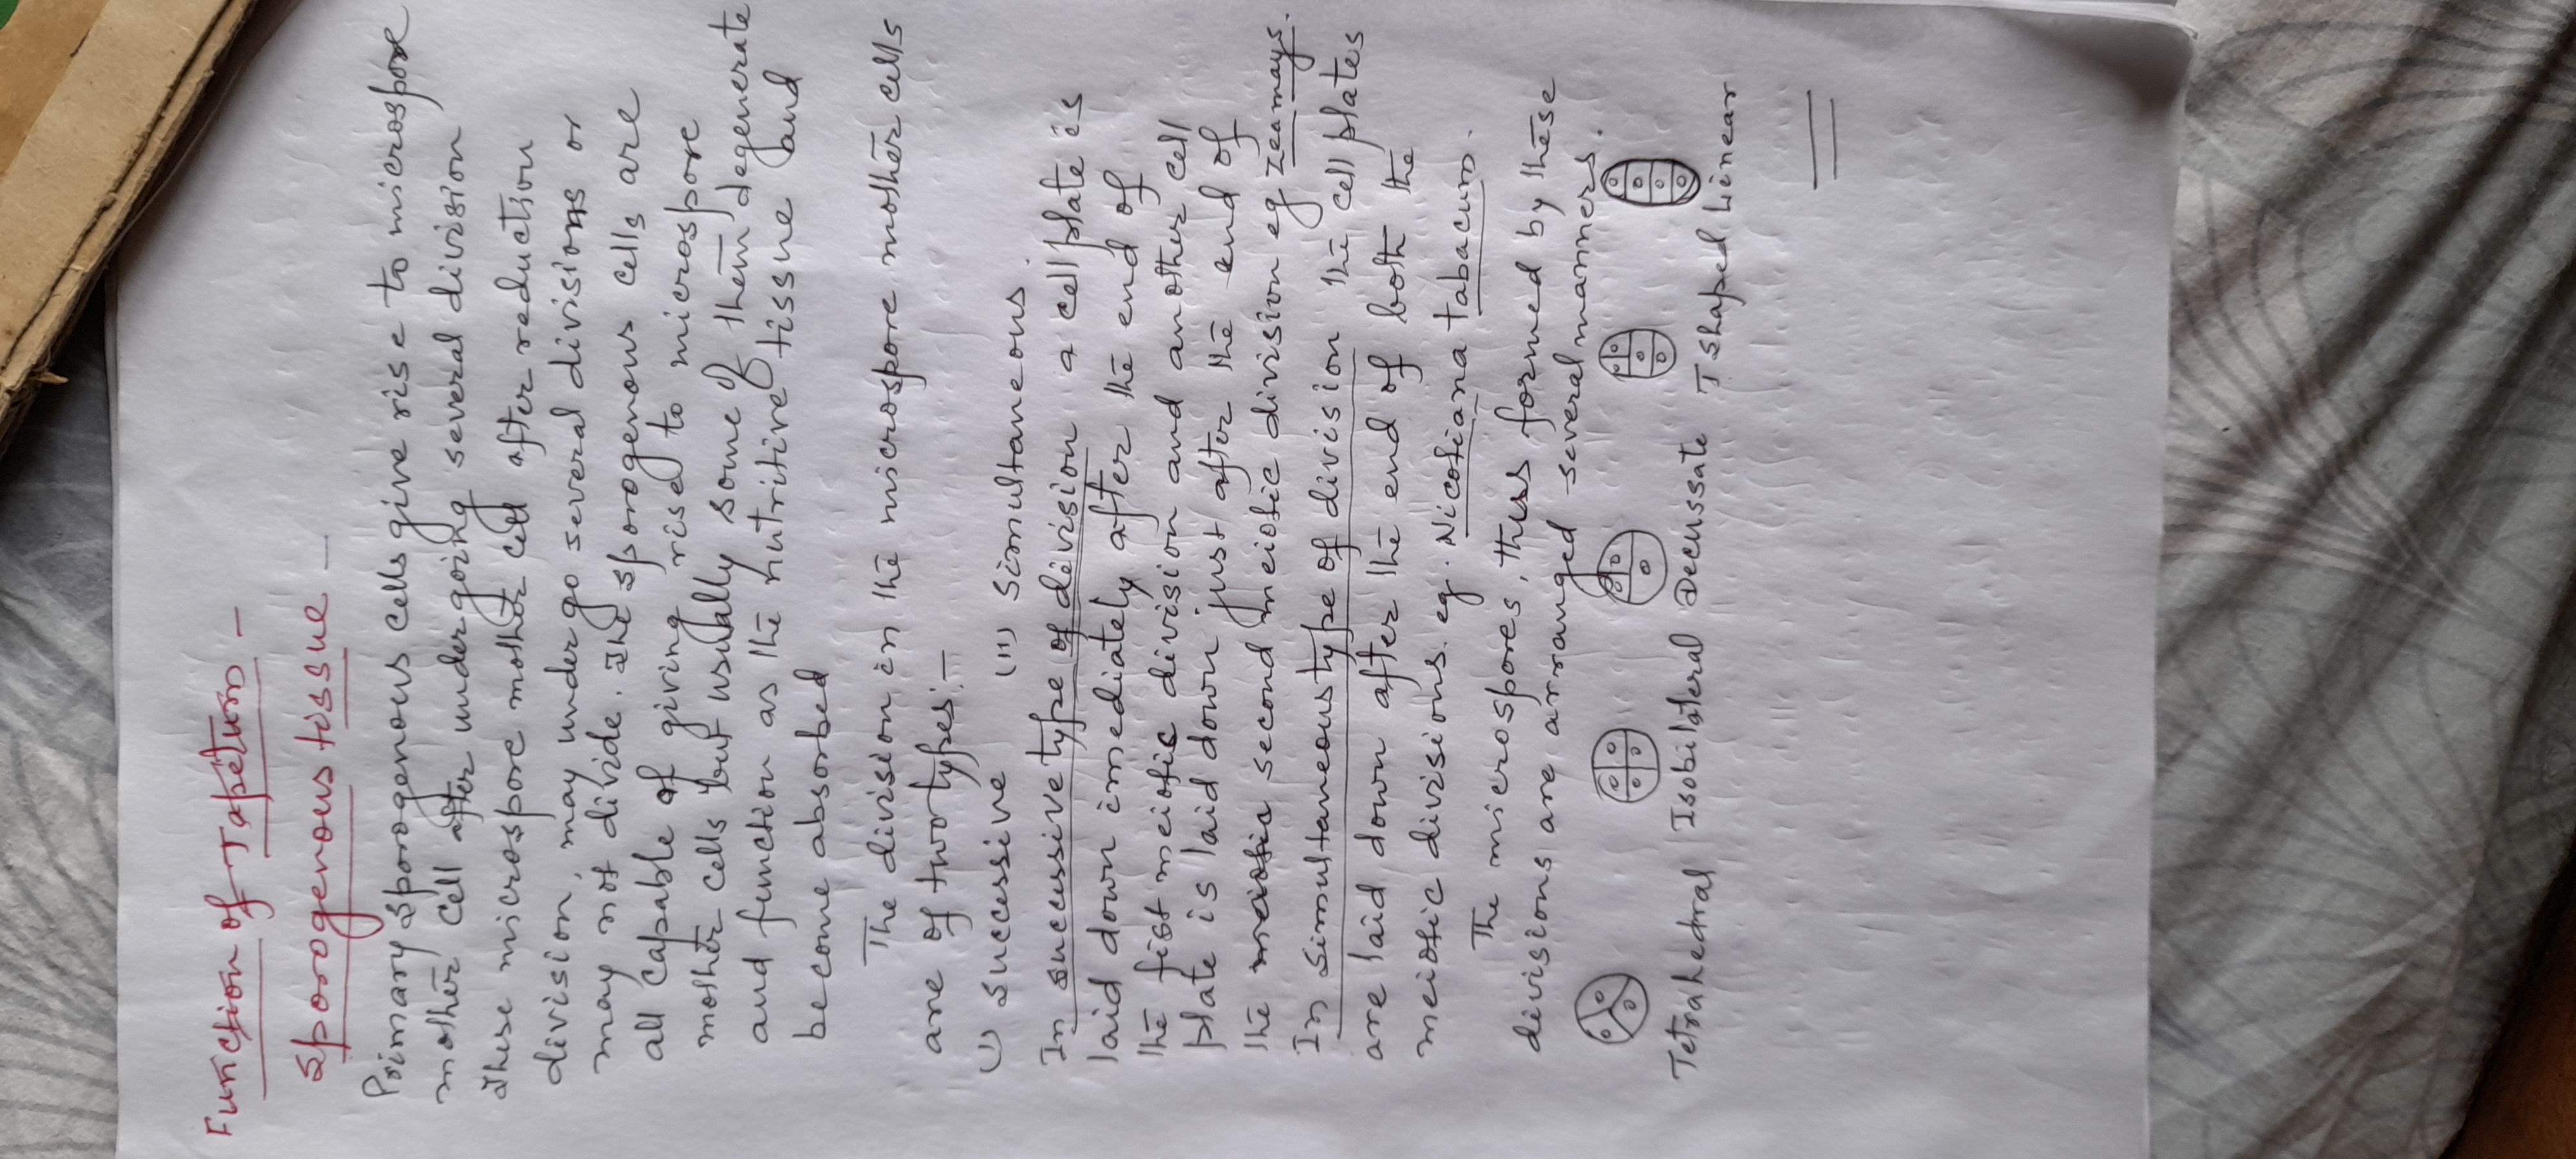 Function of Tapetum -
Sporogenous tissue -
Primary sporogenous cells give rise to microspore
mother cell after undergoing several division
These microspore mother cell after reduction
division, may undergo several divisions or
may not divide. The sporogenous cells are
all capable of giving rise to microspore
mother cells but usually some of them degenerate
and function as the nutritive tissue and
become absorbed
The division in the microspore mother cells
are of two types:-
(i) Successive (ii) Simultaneous.
In successive type of division a cell plate is
laid down imediately after the end of
the fist meiotic division and another cell
plate is laid down just after the end of
the second meiotic division eg Zea mays.
In Simultaneous type of division the cell plates
are laid down after the end of both the
meiotic divisions. eg. Nicotiana tabacum.
The microspores, thus formed by these
divisions are arranged several manners.
Tetrahedral Isobilateral Decussate T shaped Linear